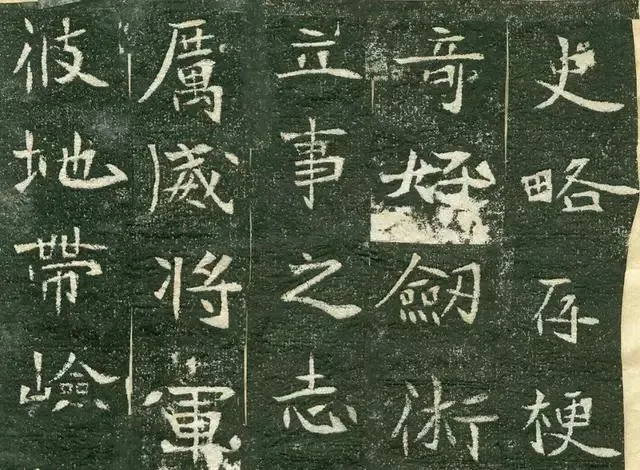 史略存梗
竒好劒術
立事之志
厲威将軍
彼地帶嶮